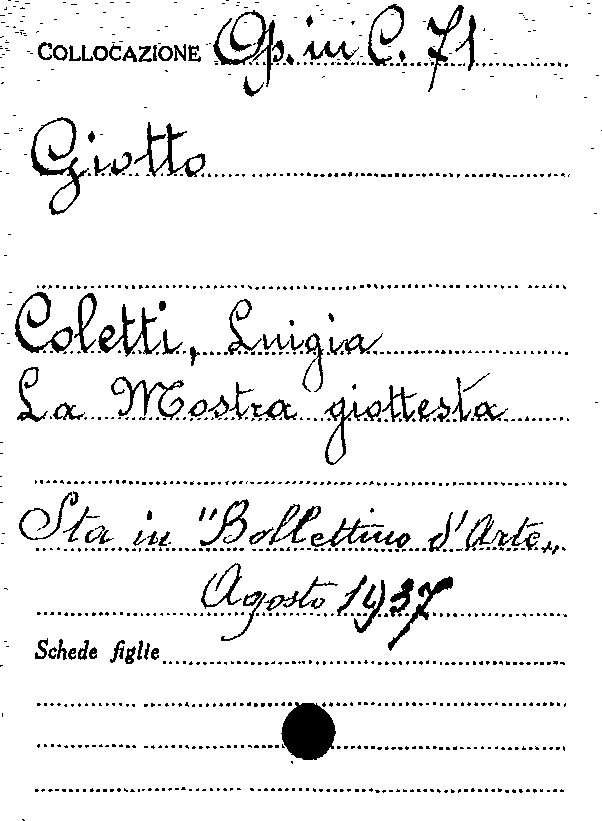 COLLOCAZIONE Op. in C. 71
Giotto
Coletti, Luigia
La Mostra giottesta
Sta in "Bollettino d'Arte„
Agosto 1937
Schede figlie